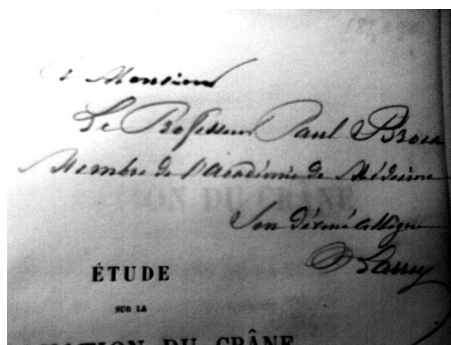 à Monsieur
Le Professeur Paul Broca
Membre de l'Académie de Médecine
Son dévoué collègue
Larrey
ÉTUDE
SUR LA
DU CRÂNE